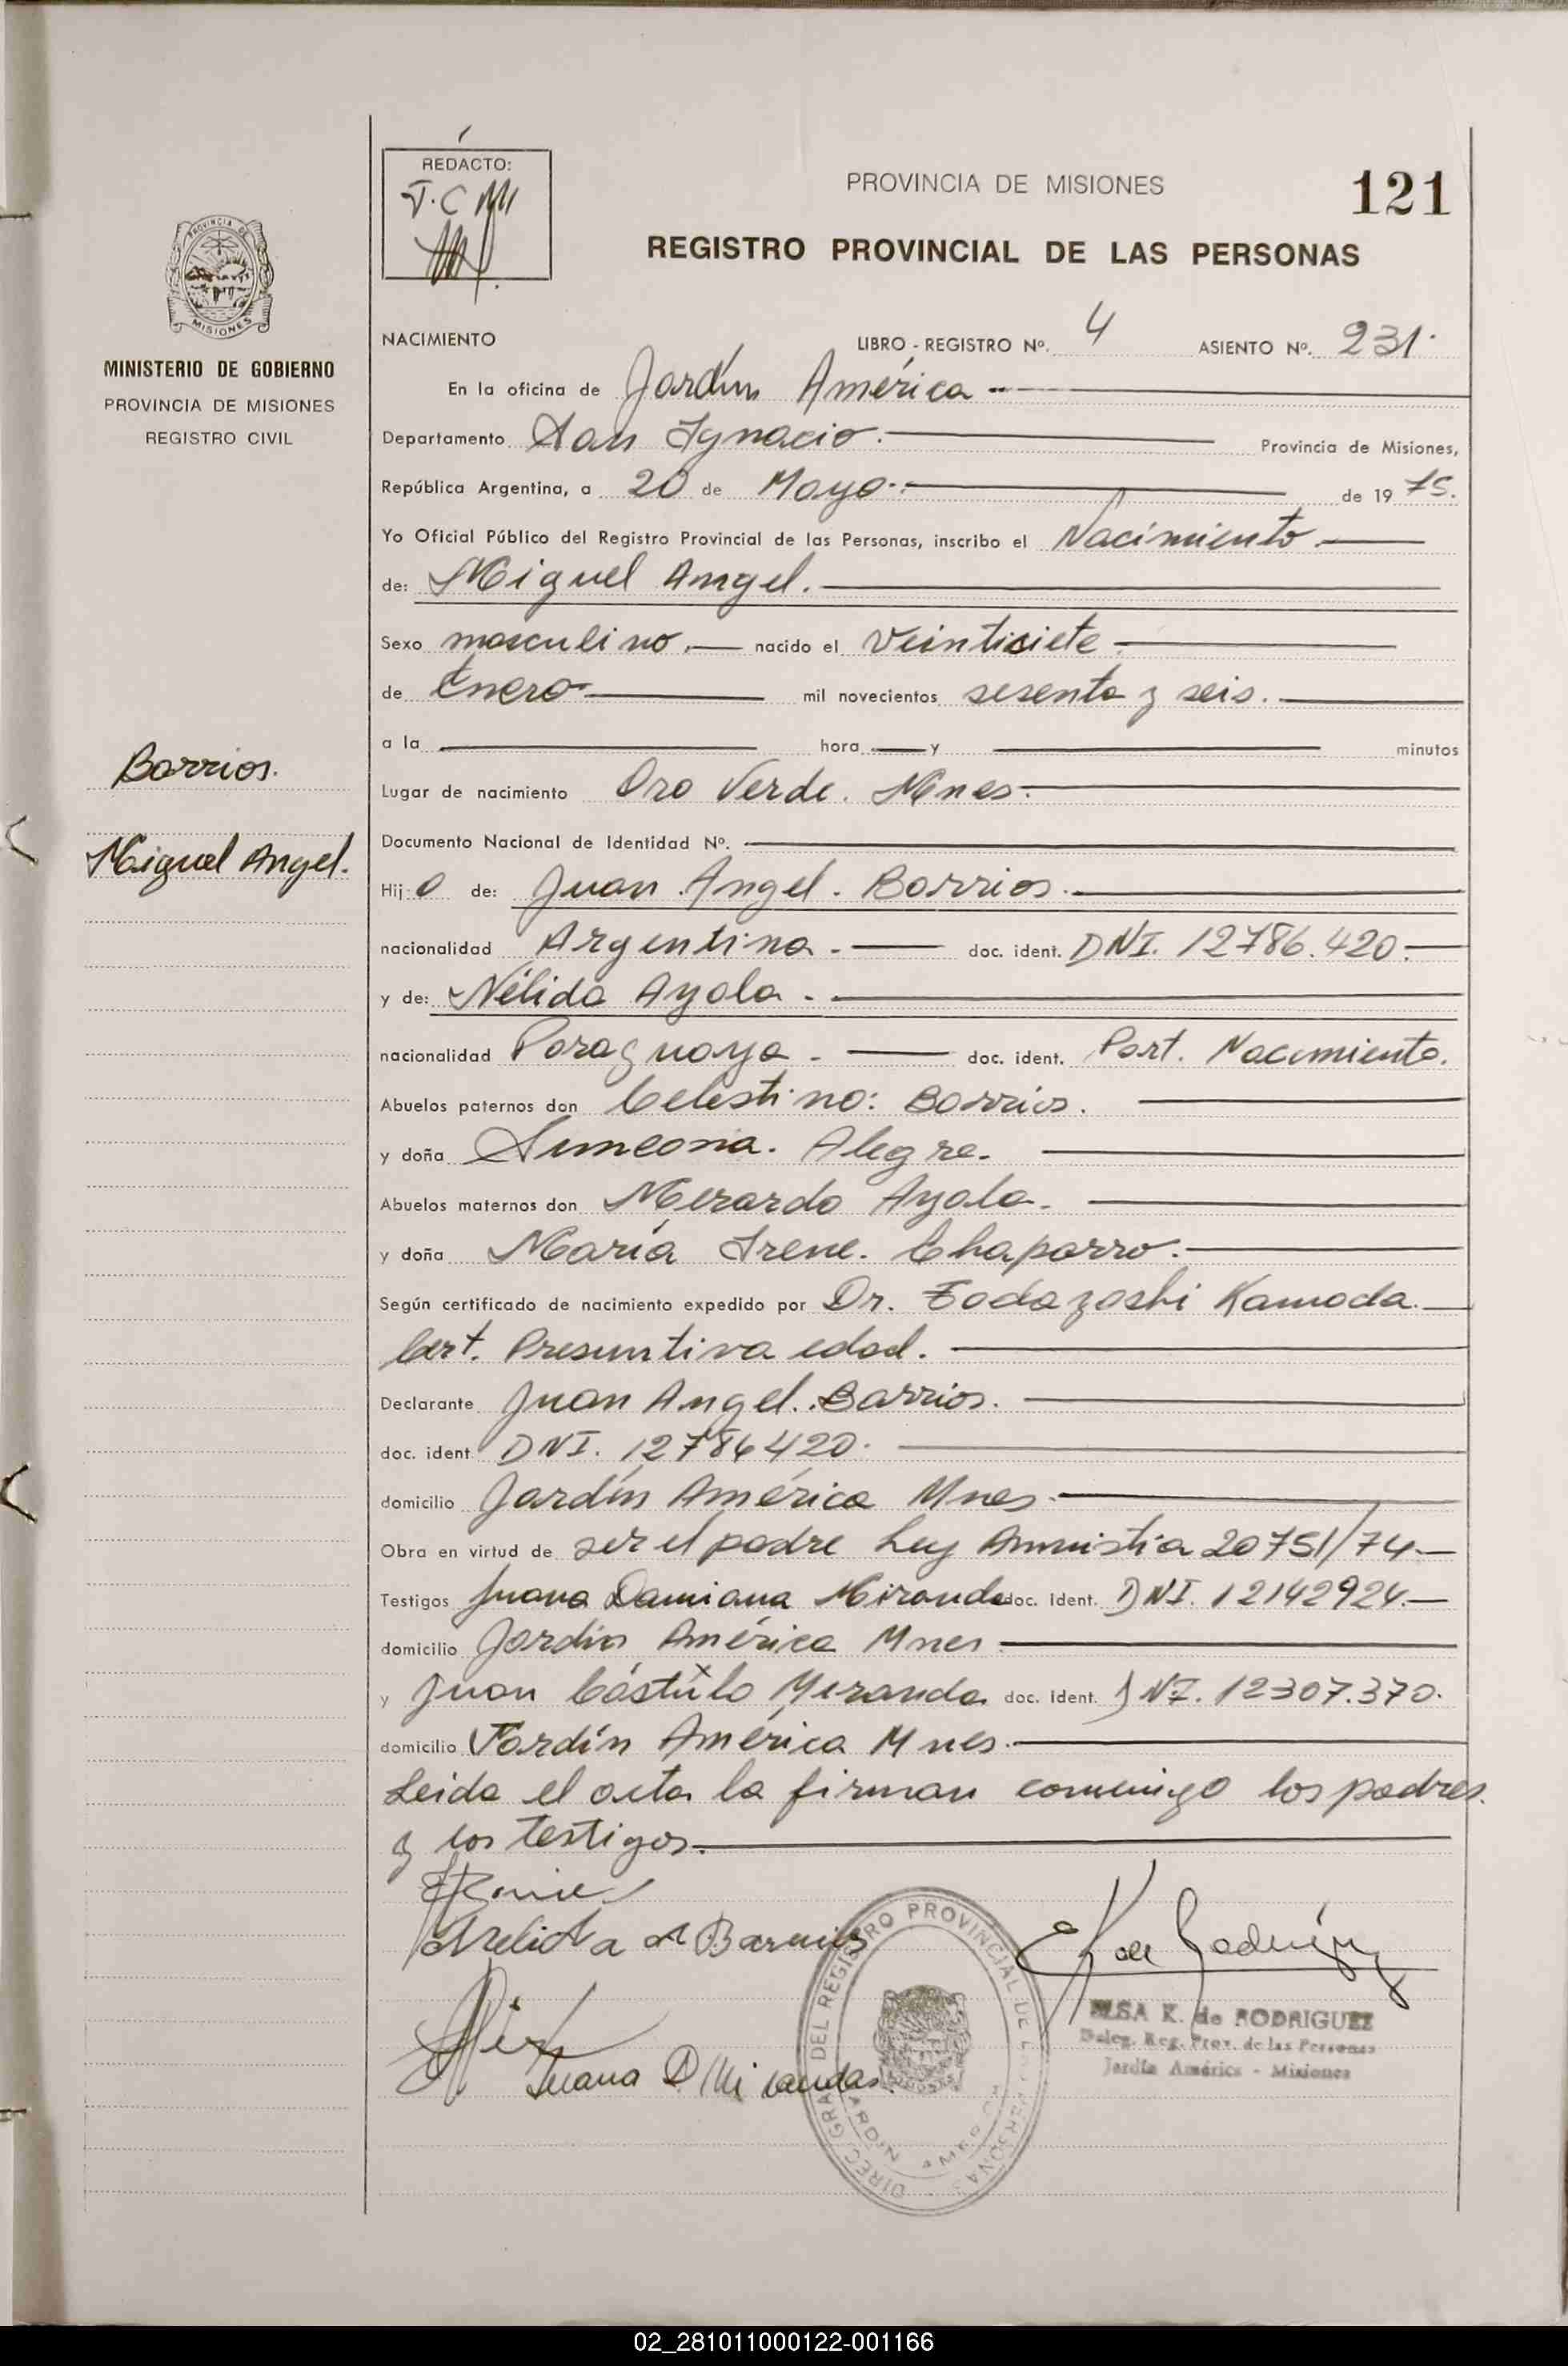 REDACTO:
J.C.M
PROVINCIA DE MISIONES
121
REGISTRO PROVINCIAL DE LAS PERSONAS
PROVINCIA DE
MISIONES
MINISTERIO DE GOBIERNO
PROVINCIA DE MISIONES
REGISTRO CIVIL
NACIMIENTO LIBRO - REGISTRO Nº. 4 ASIENTO Nº. 231.
En la oficina de Jardín América
Departamento San Ignacio. Provincia de Misiones,
República Argentina, a 20 de Mayo de 1975.
Yo Oficial Público del Registro Provincial de las Personas, inscribo el Nacimiento
de: Miguel Angel.
Sexo masculino. nacido el Veintisiete
de Enero mil novecientos sesenta y seis.
a la hora y minutos
Barrios.
Lugar de nacimiento Oro Verde. Mnes.
Documento Nacional de Identidad Nº.
Miguel Angel.
Hijo de: Juan Angel. Barrios.
nacionalidad Argentina. doc. ident. DNI. 12786.420.
y de: Nélida Ayala.
nacionalidad Paraguaya. doc. ident. Part. Nacimiento.
Abuelos paternos don Celestino: Barrios.
y doña Simeona. Alegre.
Abuelos maternos don Merardo Ayala.
y doña María Irene. Chaparro.
Según certificado de nacimiento expedido por Dr. Kamada.
Cert. Presuntiva edad.
Declarante Juan Angel. Barrios.
doc. ident. DNI. 12786420.
domicilio Jardín América Mnes.
Obra en virtud de ser el padre Ley Amnistia 20751/74
Testigos Juana Damiana Miranda doc. ident. DNI. 12142924.
domicilio Jardín América Mnes
y Juan Cástulo Miranda doc. ident. DNI. 12307.370.
domicilio Jardín América Mnes.
Leida el acta la firman conmigo los padres.
y los testigos.
de Barrios
E K de Rodriguez
Juana D Miranda
DIREC. GRAL DEL REGISTRO PROVINCIAL DE LAS PERSONAS
JARDIN AMERICA
ELSA K. de RODRIGUEZ
Deleg. Reg. Prov. de las Personas
Jardín América - Misiones
02_281011000122-001166